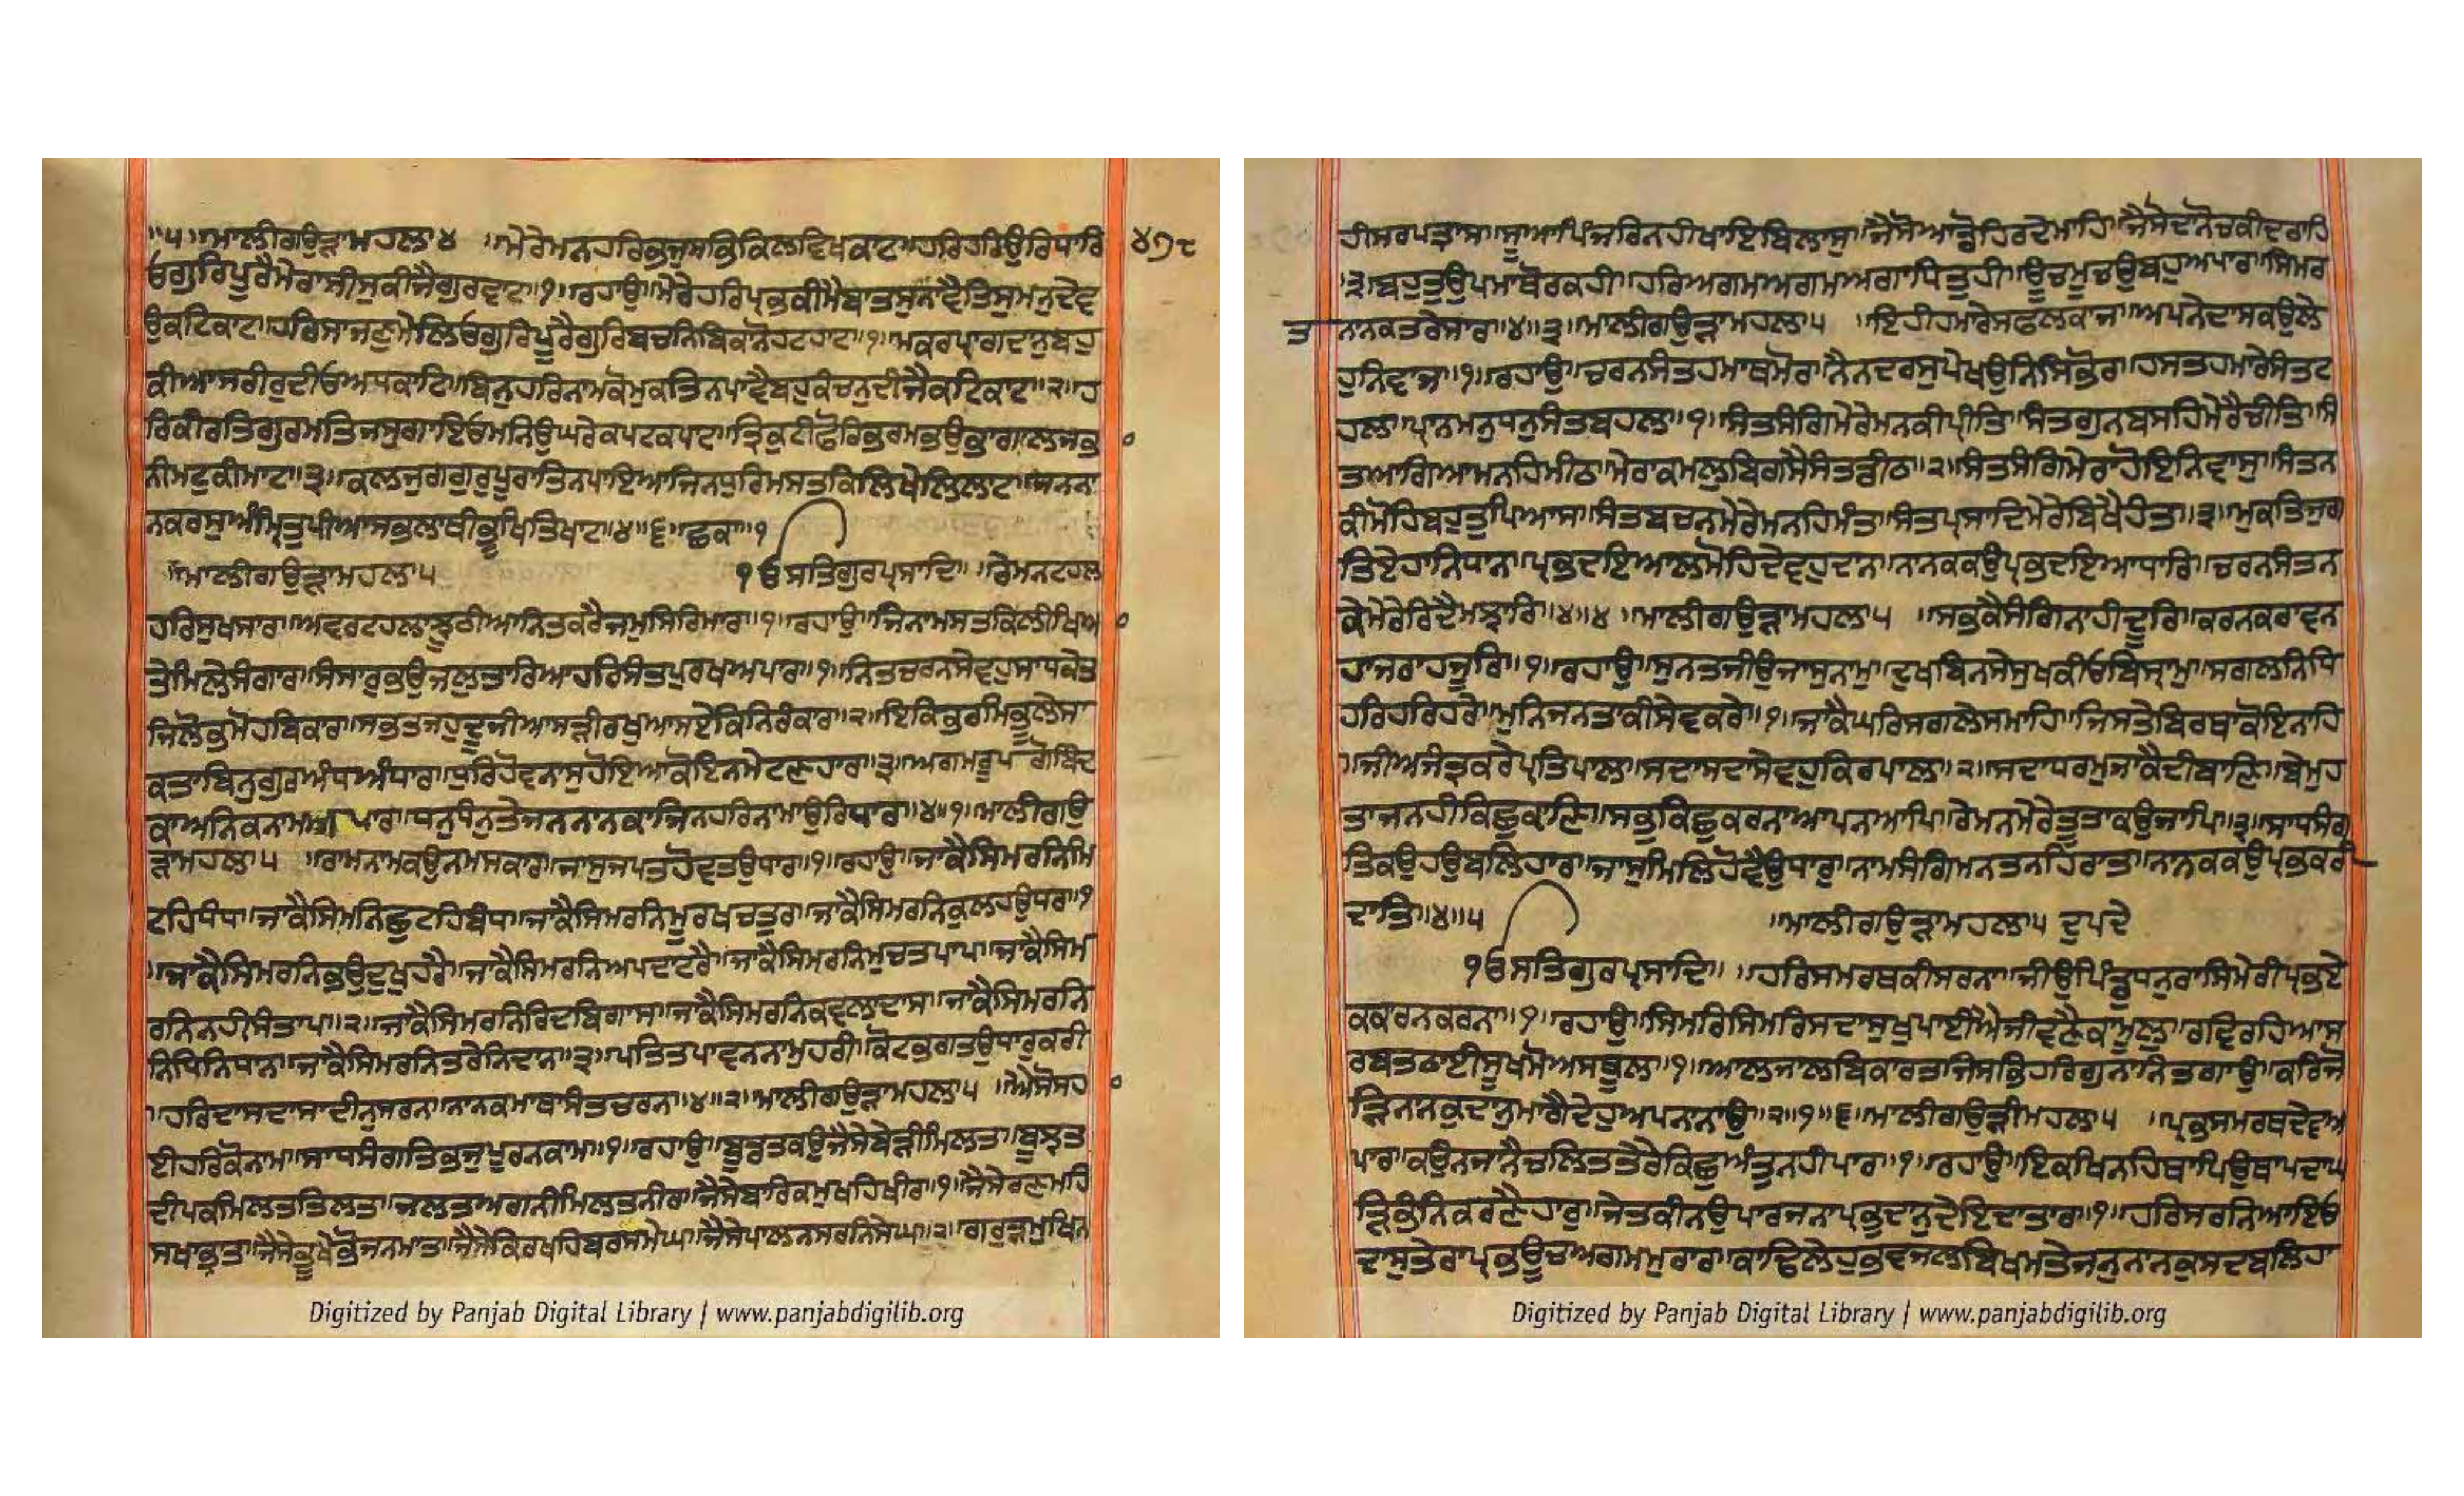 ॥੫॥ਮਾਲੀਗਉੜਾਮਹਲਾ੪ ॥ਮੇਰੇਮਨਹਰਿਭਜੁਸਭਿਕਿਲਵਿਖਕਾਟ॥ਹਰਿਹਰਿਉਰਿਧਾਰਿ
੪੭੮
ਓਗੁਰਿਪੂਰੈਮੇਰਾਸੀਸੁਕੀਜੈਗੁਰਵਾਟ॥੧॥ਰਹਾਉ॥ਮੇਰੇਹਰਿਪ੍ਰਭਕੀਮੈਬਾਤਸੁਨਾਵੈਤਿਸੁਮਨੁਦੇਵ
ਉਕਟਿਕਾਟ॥ਹਰਿਸਾਜਣੁਮੇਲਿਓਗੁਰਿਪੂਰੈਗੁਰਿਬਚਨਿਬਿਕਾਨੋਹਟਹਾਟ॥੧॥ਮਕਰਪ੍ਰਾਗਦਾਨੁਬਹੁ
ਕੀਆਸਰੀਰੁਦੀਓਅਧਕਾਟਿ॥ਬਿਨੁਹਰਿਨਾਮਕੋਮੁਕਤਿਨਪਾਵੈਬਹੁਕੰਚਨੁਦੀਜੈਕਟਿਕਾਟ॥੨॥ਹ
ਰਿਕੀਰਤਿਗੁਰਮਤਿਜਸੁਗਾਇਓਮਨਿਉਘਰੇਕਪਟਕਪਾਟ॥ਤ੍ਰਿਕੁਟੀਫੋਰਿਭਰਮਭਉਭਾਗਾਲਜਭ
ਨੀਮਟੁਕੀਮਾਟ॥੩॥ਕਲਜੁਗਗੁਰੁਪੂਰਾਤਿਨਪਾਇਆਜਿਨਧੁਰਿਮਸਤਕਿਲਿਖੇਲਿਲਾਟ॥ਜਨਨਾ
ਨਕਰਸੁਅੰਮ੍ਰਿਤੁਪੀਆਸਭਲਾਥੀਭੂਖਤਿਖਾਟ॥੪॥੬॥ਛਕਾ॥੧
॥ਮਾਲੀਗਉੜਾਮਹਲਾ੫ ੴਸਤਿਗੁਰਪ੍ਰਸਾਦਿ॥ ॥ਰੇਮਨਟਹਲ
ਹਰਿਸੁਖਸਾਰ॥ਅਵਰਟਹਲਾਝੂਠੀਆਨਿਤਕਰੈਜਮੁਸਿਰਿਮਾਰ॥੧॥ਰਹਾਉ॥ਜਿਨਾਮਸਤਕਿਲੀਖਿਆ
ਤੇਮਿਲੇਸੰਗਾਰ॥ਸੰਸਾਰੁਭਉਜਲੁਤਾਰਿਆਹਰਿਸੰਤਪੁਰਖਅਪਾਰ॥੧॥ਨਿਤਚਰਨਸੇਵਹੁਸਾਧਕੇਤ
ਜਿਲੋਭਮੋਹਬਿਕਾਰ॥ਸਭਤਜਹੁਦੂਜੀਆਸੜੀਰਖੁਆਸਏਕਿਨਿਰੰਕਾਰ॥੨॥ਇਕਿਭਰਮਿਭੂਲੇਸਾ
ਕਤਾਬਿਨੁਗੁਰਅੰਧਅੰਧਾਰ॥ਧੁਰਿਹੋਵਨਾਸੁਹੋਇਆਕੋਇਨਮੇਟਣਹਾਰ॥੩॥ਅਗਮਰੂਪੁਗੋਬਿੰਦ
ਕਾਅਨਿਕਨਾਮਅਪਾਰ॥ਧਨੁਧੰਨੁਤੇਜਨਨਾਨਕਾਜਿਨਹਰਿਨਾਮਾਉਰਿਧਾਰ॥੪॥੧॥ਮਾਲੀਗਉ
ੜਾਮਹਲਾ੫ ॥ਰਾਮਨਾਮਕਉਨਮਸਕਾਰ॥ਜਾਸੁਜਪਤਹੋਵਤਉਧਾਰ॥੧॥ਰਹਾਉ॥ਜਾਕੈਸਿਮਰਨਿਮਿ
ਟਹਿਧੰਧ॥ਜਾਕੈਸਿਮਨਿਛੂਟਹਿਬੰਧ॥ਜਾਕੈਸਿਮਰਨਿਮੂਰਖਚਤੁਰ॥ਜਾਕੈਸਿਮਰਨਿਕੁਲਹਉਧਰ॥੧
॥ਜਾਕੈਸਿਮਰਨਿਭਉਦੁਖੁਹਰੈ॥ਜਾਕੈਸਿਮਰਨਿਅਪਦਾਟਰੈ॥ਜਾਕੈਸਿਮਰਨਿਮੁਚਤਪਾਪ॥ਜਾਕੈਸਿਮ
ਰਨਿਨਹੀਸੰਤਾਪ॥੨॥ਜਾਕੈਸਿਮਰਨਿਰਿਦਬਿਗਾਸ॥ਜਾਕੈਸਿਮਰਨਿਕਵਲਾਦਾਸ॥ਜਾਕੈਸਿਮਰਨਿ
ਨਿਧਿਨਿਧਾਨ॥ਜਾਕੈਸਿਮਰਨਿਤਰੇਨਿਦਾਨ॥੩॥ਪਤਿਤਪਾਵਨਨਾਮੁਹਰੀ॥ਕੋਟਭਗਤਉਧਾਰੁਕਰੀ
॥ਹਰਿਦਾਸਦਾਸਾਦੀਨੁਸਰਨ॥ਨਾਨਕਮਾਥਾਸੰਤਚਰਨ॥੪॥੨॥ਮਾਲੀਗਉੜਾਮਹਲਾ੫ ॥ਐਸੋਸਹ
ਈਹਰਿਕੋਨਾਮ॥ਸਾਧਸੰਗਤਿਭਜੁਪੂਰਨਕਾਮ॥੧॥ਰਹਾਉ॥ਬੂਡਤਕਉਜੈਸੇਬੇੜੀਮਿਲਤ॥ਬੂਝਤ
ਦੀਪਕਮਿਲਤਤਿਲਤ॥ਜਲਤਅਗਨੀਮਿਲਤਨੀਰ॥ਜੈਸੇਬਾਰਿਕਮੁਖਹਿਖੀਰ॥੧॥ਜੈਸੇਰਣਮਹਿ
ਸਖਾਭ੍ਰਾਤ॥ਜੈਸੇਭੂਖੇਭੋਜਨਮਾਤ॥ਜੈਸੇਕਿਰਖਹਿਬਰਸਮੇਘ॥ਜੈਸੇਪਾਲਨਸਰਨਿਸੇਂਘ॥੨॥ਗਰੁੜਮੁਖਿਨ
ਹੀਸਰਪਤ੍ਰਾਸ॥ਸੂਆਪਿੰਜਰਿਨਹੀਖਾਇਬਿਲਾਸੁ॥ਜੈਸੋਆਂਡੋਹਿਰਦੇਮਾਹਿ॥ਜੈਸੋਦਾਨੋਚਕੀਦਰਾਹਿ
॥੩॥ਬਹੁਤੁਉਪਮਾਥੋਰਕਹੀ॥ਹਰਿਅਗਮਅਗਮਅਗਾਧਿਤੁਹੀ॥ਊਚਮੂਚਉਬਹੁਅਪਾਰ॥ਸਿਮਰ
ਤ ਨਾਨਕਤਰੇਸਾਰ॥੪॥੩॥ਮਾਲੀਗਉੜਾਮਹਲਾ੫ ॥ਇਹੀਹਮਾਰੈਸਫਲਕਾਜ॥ਅਪਨੇਦਾਸਕਉਲੇ
ਹੁਨਿਵਾਜ॥੧॥ਰਹਾਉ॥ਚਰਨਸੰਤਹਮਾਥਮੋਰ॥ਨੈਨਦਰਸੁਪੇਖਉਨਿਸਿਭੋਰ॥ਹਸਤਹਮਾਰੇਸੰਤਟ
ਹਲ॥ਪ੍ਰਾਨਮਨੁਧਨੁਸੰਤਬਹਲ॥੧॥ਸੰਤਸੰਗਿਮੇਰੇਮਨਕੀਪ੍ਰੀਤਿ॥ਸੰਤਗੁਨਬਸਹਿਮੇਰੈਚੀਤਿ॥ਸੰ
ਤਆਗਿਆਮਨਹਿਮੀਠ॥ਮੇਰਾਕਮਲੁਬਿਗਸੈਸੰਤਡੀਠ॥੨॥ਸੰਤਸੰਗਿਮੇਰਾਹੋਇਨਿਵਾਸੁ॥ਸੰਤਨ
ਕੀਮੋਹਿਬਹੁਤੁਪਿਆਸ॥ਸੰਤਬਚਨਮੇਰੇਮਨਹਿਮੰਤ॥ਸੰਤਪ੍ਰਸਾਦਿਮੇਰੇਬਿਖੈਹੰਤ॥੩॥ਮੁਕਤਿਜੁਗ
ਤਿਏਹਾਨਿਧਾਨ॥ਪ੍ਰਭਦਇਆਲਮੋਹਿਦੇਵਹੁਦਾਨ॥ਨਾਨਕਕਉਪ੍ਰਭਦਇਆਧਾਰਿ॥ਚਰਨਸੰਤਨ
ਕੇਮੇਰੇਰਿਦੈਮਝਾਰਿ॥੪॥੪ ॥ਮਾਲੀਗਉੜਾਮਹਲਾ੫ ॥ਸਭਕੈਸੰਗਿਨਾਹੀਦੂਰਿ॥ਕਰਨਕਰਾਵਨ
ਹਾਜਰਾਹਜੂਰਿ॥੧॥ਰਹਾਉ॥ਸੁਨਤਜੀਉਜਾਸੁਨਾਮੁ॥ਦੁਖਬਿਨਸੇਸੁਖਕੀਓਬਿਸ੍ਰਾਮੁ॥ਸਗਲਨਿਧਿ
ਹਰਿਹਰਿਹਰੇ॥ਮੁਨਿਜਨਤਾਕੀਸੇਵਕਰੇ॥੧॥ਜਾਕੈਘਰਿਸਗਲੇਸਮਾਹਿ॥ਜਿਸਤੇਬਿਰਥਾਕੋਇਨਾਹਿ
॥ਜੀਅਜੰਤ੍ਰਕਰੇਪ੍ਰਤਿਪਾਲ॥ਸਦਾਸਦਾਸੇਵਹੁਕਿਰਪਾਲ॥੨॥ਸਦਾਧਰਮੁਜਾਕੈਦੀਬਾਣਿ॥ਬੇਮੁਹ
ਤਾਜਨਹੀਕਿਛੁਕਾਣਿ॥ਸਭਕਿਛੁਕਰਨਾਆਪਨਆਪਿ॥ਰੇਮਨਮੇਰੇਤੂਤਾਕਉਜਾਪਿ॥੩॥ਸਾਧਸੰਗ
ਤਿਕਉਹਉਬਲਿਹਾਰ॥ਜਾਸੁਮਿਲਿਹੋਵੈਉਧਾਰੁ॥ਨਾਮਸੰਗਿਮਨਤਨਹਿਰਾਤ॥ਨਾਨਕਕਉਪ੍ਰਭਕਰੀ
ਦਾਤਿ॥੪॥੫ ॥ਮਾਲੀਗਉੜਾਮਹਲਾ੫ ਦੁਪਦੇ
ੴਸਤਿਗੁਰਪ੍ਰਸਾਦਿ॥ ॥ਹਰਿਸਮਰਥਕੀਸਰਨਾ॥ਜੀਉਪਿੰਡੁਧਨੁਰਾਸਿਮੇਰੀਪ੍ਰਭਏ
ਕਕਾਰਨਕਰਨਾ॥੧॥ਰਹਾਉ॥ਸਿਮਰਿਸਿਮਰਿਸਦਾਸੁਖੁਪਾਈਐਜੀਵਣੈਕਾਮੂਲੁ॥ਰਵਿਰਹਿਆਸ
ਰਬਤਠਾਈਸੂਖਮੋਅਸਥੂਲ॥੧॥ਆਲਜਾਲਬਿਕਾਰਤਜਿਸਭਿਹਰਿਗੁਨਾਨਿਤਗਾਉ॥ਕਰਿਜੋ
ੜਿਨਾਨਕੁਦਾਨੁਮਾਂਗੈਦੇਹੁਅਪਨਾਨਾਉ॥੨॥੧॥੬॥ਮਾਲੀਗਉੜੀਮਹਲਾ੫ ॥ਪ੍ਰਭਸਮਰਥਦੇਵਅ
ਪਾਰ॥ਕਉਨਜਾਨੈਚਲਿਤਤੇਰੇਕਿਛੁਅੰਤੁਨਹੀਪਾਰ॥੧॥ਰਹਾਉ॥ਇਕਖਿਨਹਿਥਾਪਿਉਥਾਪਦਾਘ
ੜਿਭੰਨਿਕਰਣੈਹਾਰੁ॥ਜੇਤਕੀਨਉਪਾਰਜਨਾਪ੍ਰਭਦਾਨੁਦੇਇਦਾਤਾਰ॥੧॥ਹਰਿਸਰਨਿਆਇਓ
ਦਾਸੁਤੇਰਾਪ੍ਰਭਊਚਅਗਮਮੁਰਾਰ॥ਕਾਢਿਲੇਹੁਭਵਜਲਬਿਖਮਤੇਜਨੁਨਾਨਕੁਸਦਬਲਿਹਾ
Digitized by Panjab Digital Library | www.panjabdigilib.org
Digitized by Panjab Digital Library | www.panjabdigilib.org